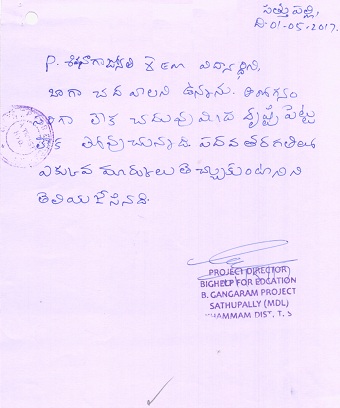 సత్తుపల్లి,
ది-01-05-2017.
P. శివనాగాజ్యోతి విద్యార్థిని,
బాగా చదవాలని ఉన్నాను. ఆరోగ్యం
లేక చదువు మీద దృష్టి పెట్ట
లేక పోవుచున్నాడి పదవ తరగతిలో
ఎక్కువ మార్కులు తెచ్చుకుంటానని
తెలియజేసినది.
PROJECT DIRECTOR
BIGHELP FOR EDCATION
B. GANGARAM PROJECT
SATHUPALLY (MDL)
KHAMMAM DIST. T. S